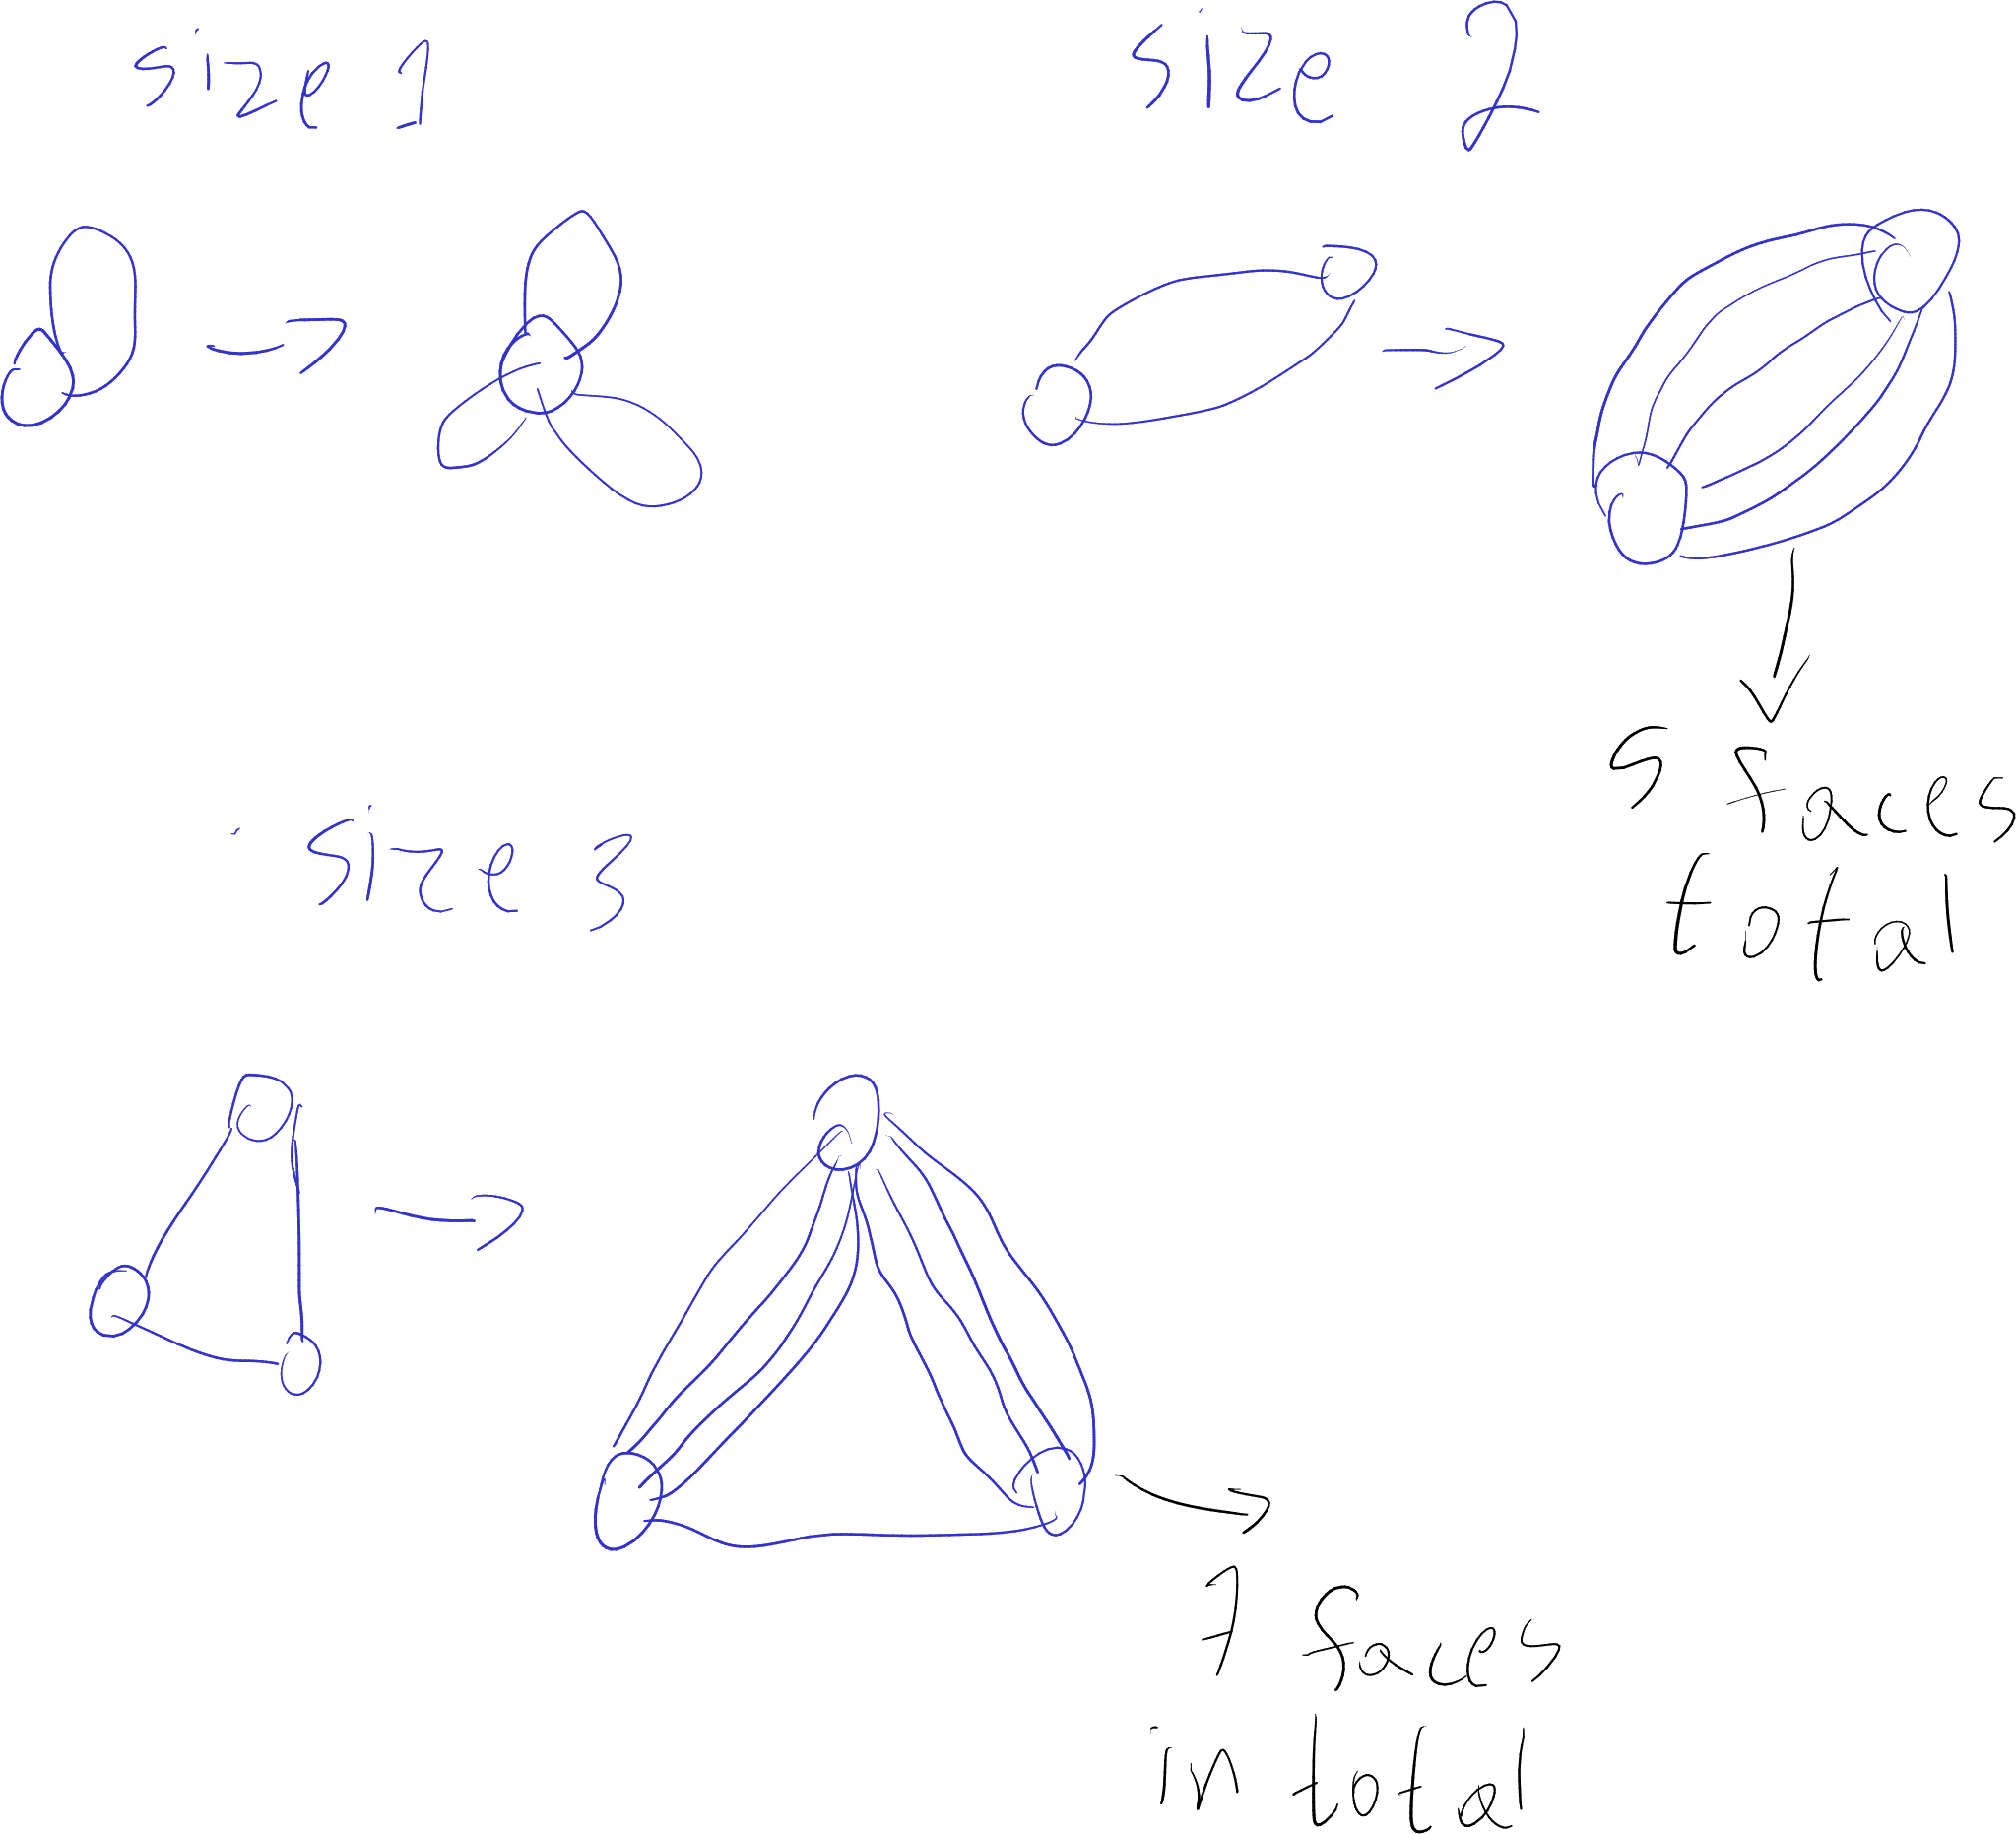 size 1
size 2
5 faces
total
size 3
7 faces
in total